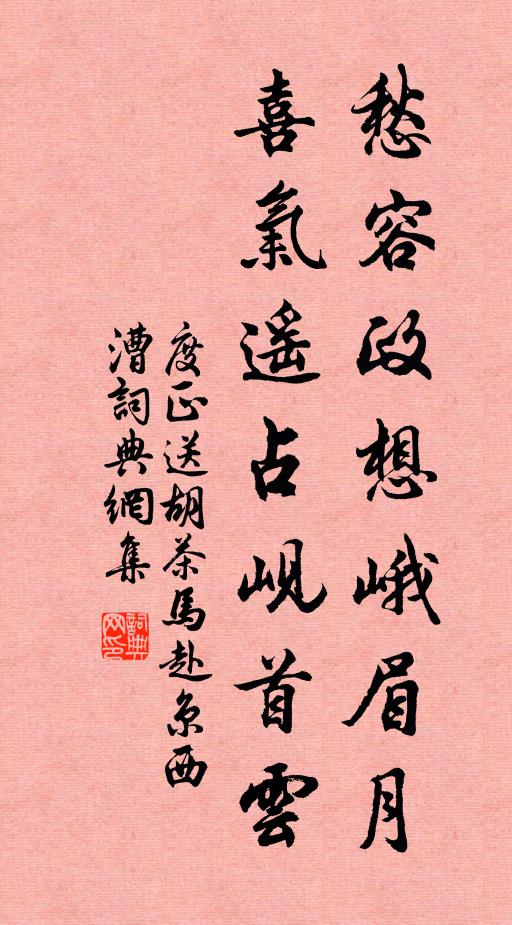 愁容政想峨眉月
喜氣遥占峴首雲
度正送胡茶馬赴京西
漕詞典網集
詞典网印